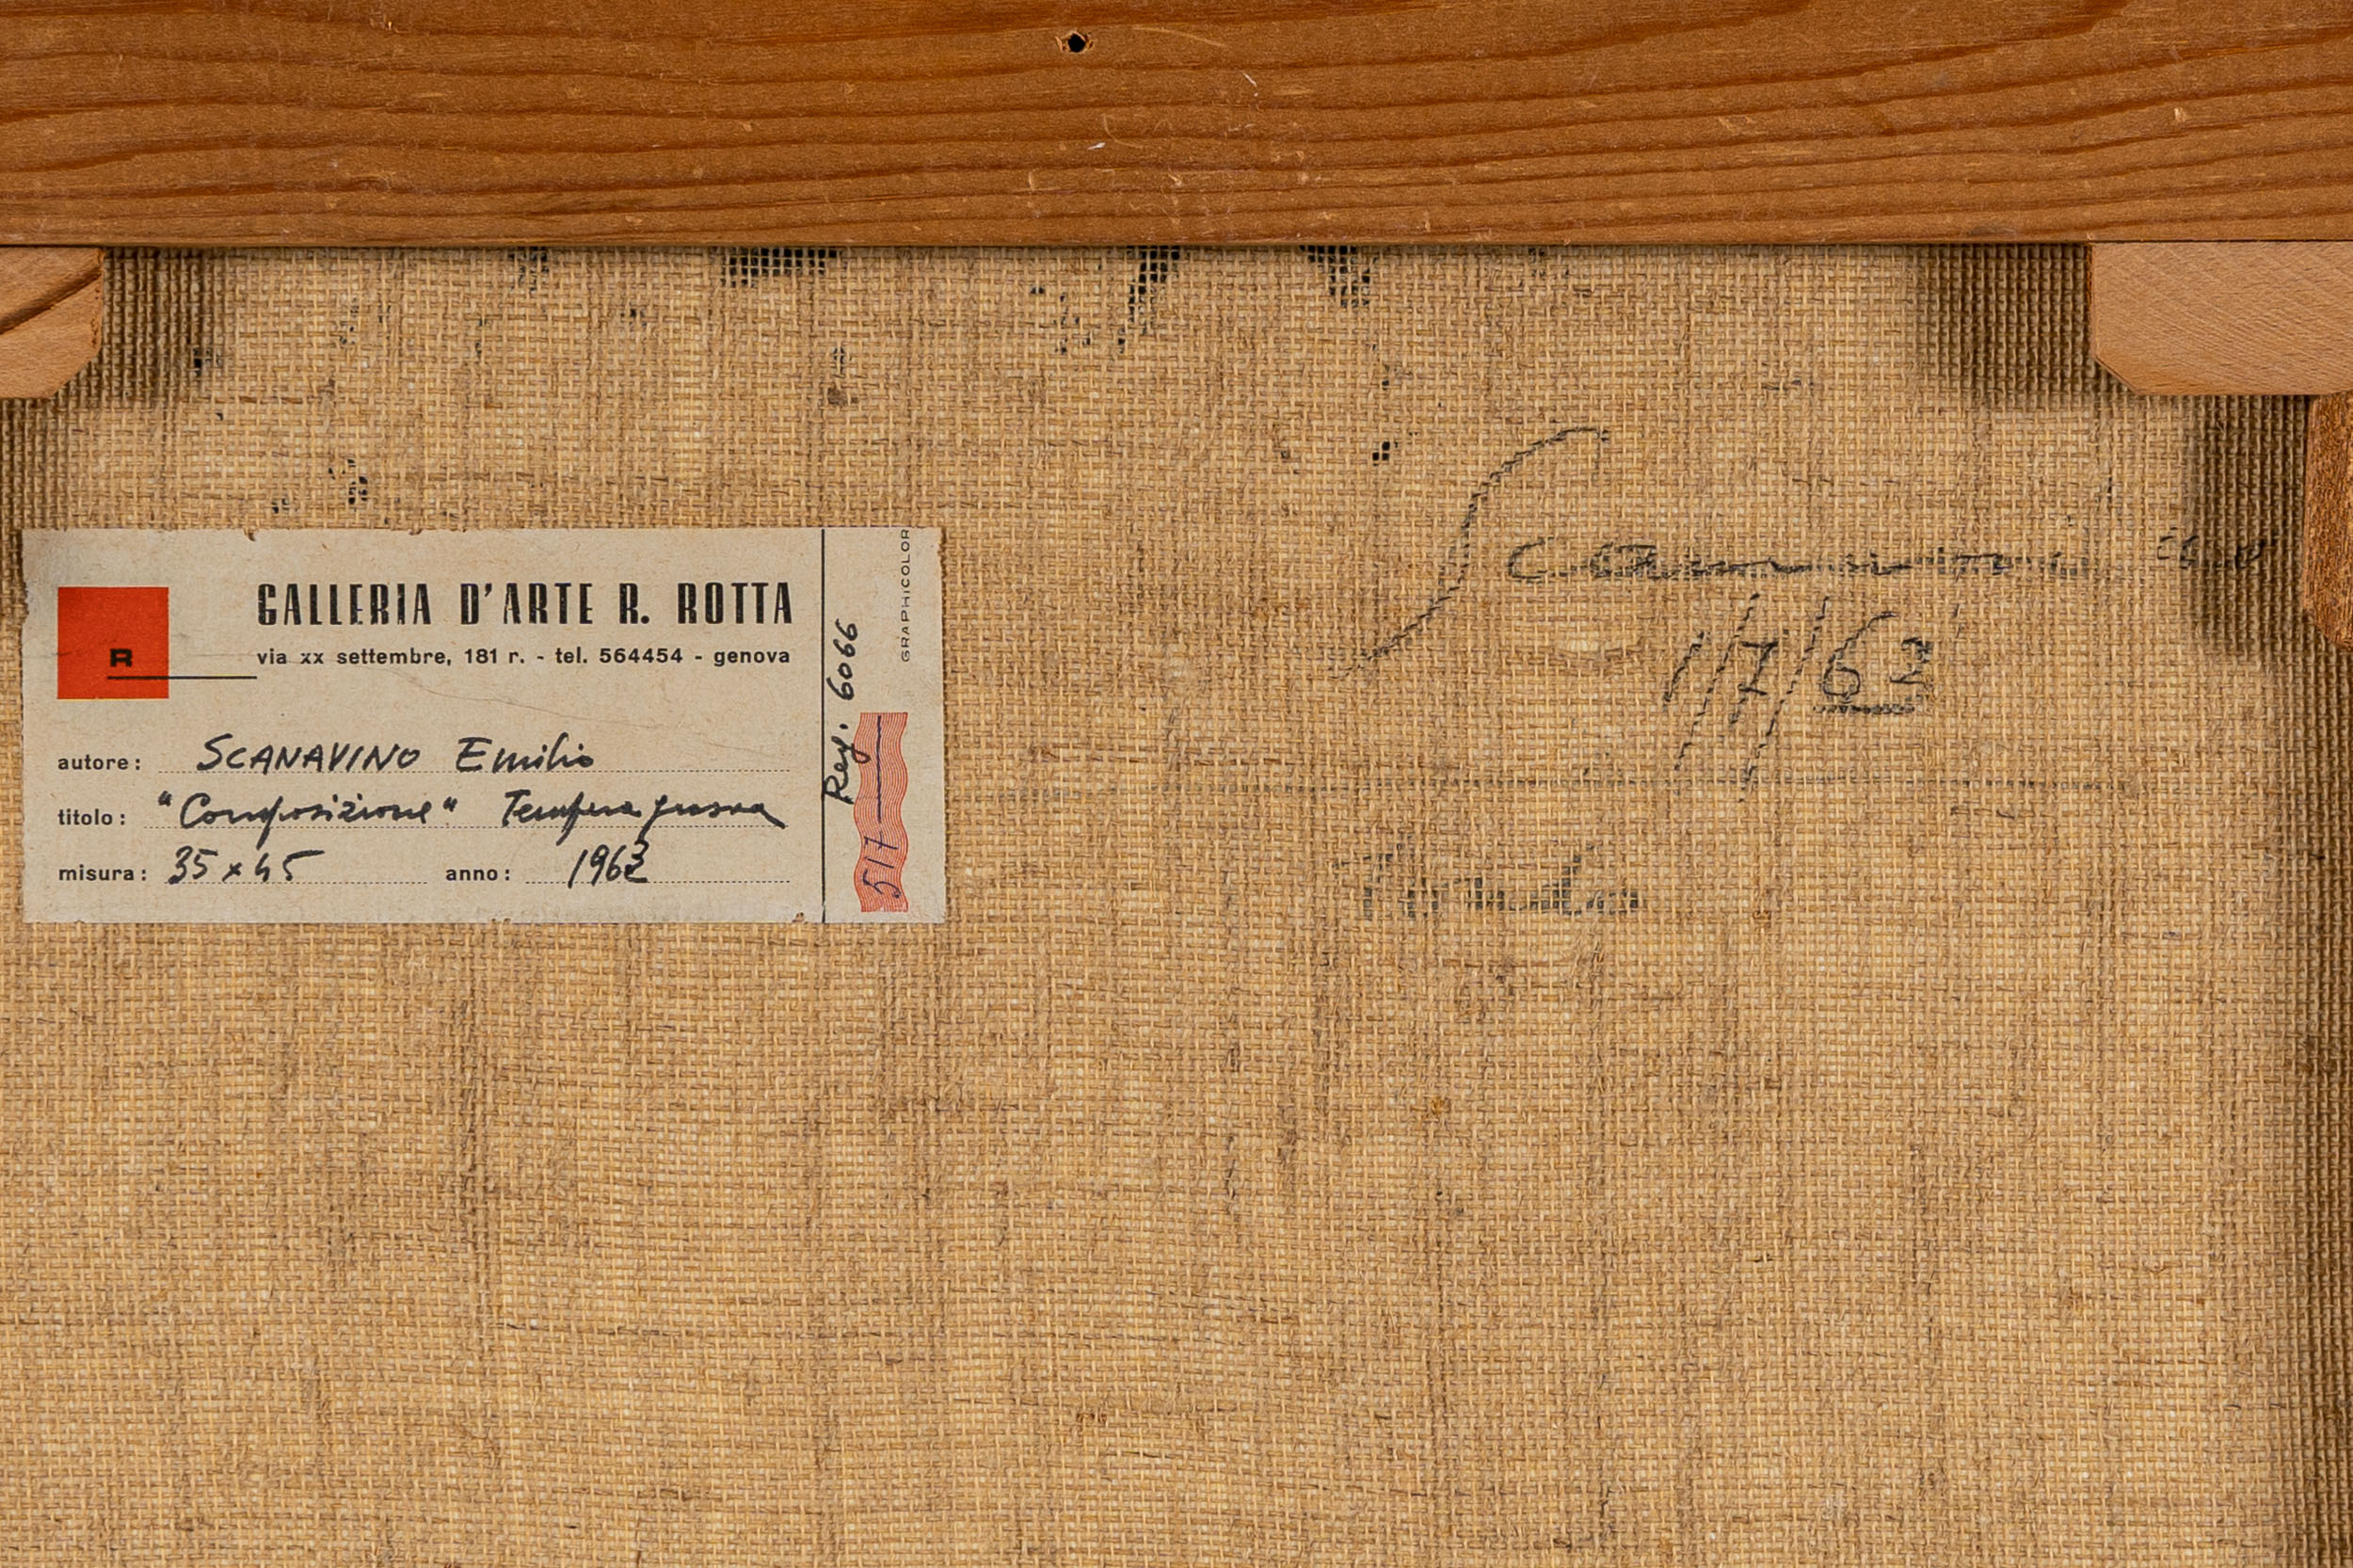 R
GALLERIA D'ARTE R. ROTTA
via xx settembre, 181 r. - tel. 564454 - genova
autore: SCANAVINO Emilio
titolo: "Composizione" Tempera grassa
misura: 35 x 45 anno: 1963
Reg. 6066
GRAPHICOLOR
517
Scanavino
1/7/63